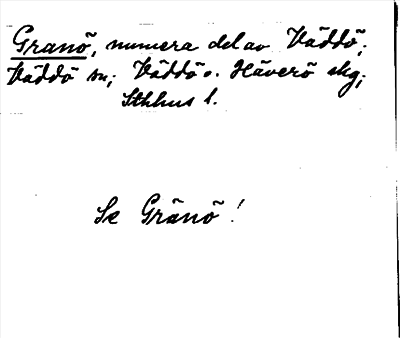 Granö, numera del av Väddö;
Väddö sn; Väddö o. Häverö skg;
Sthlms l.
Se Gränö!